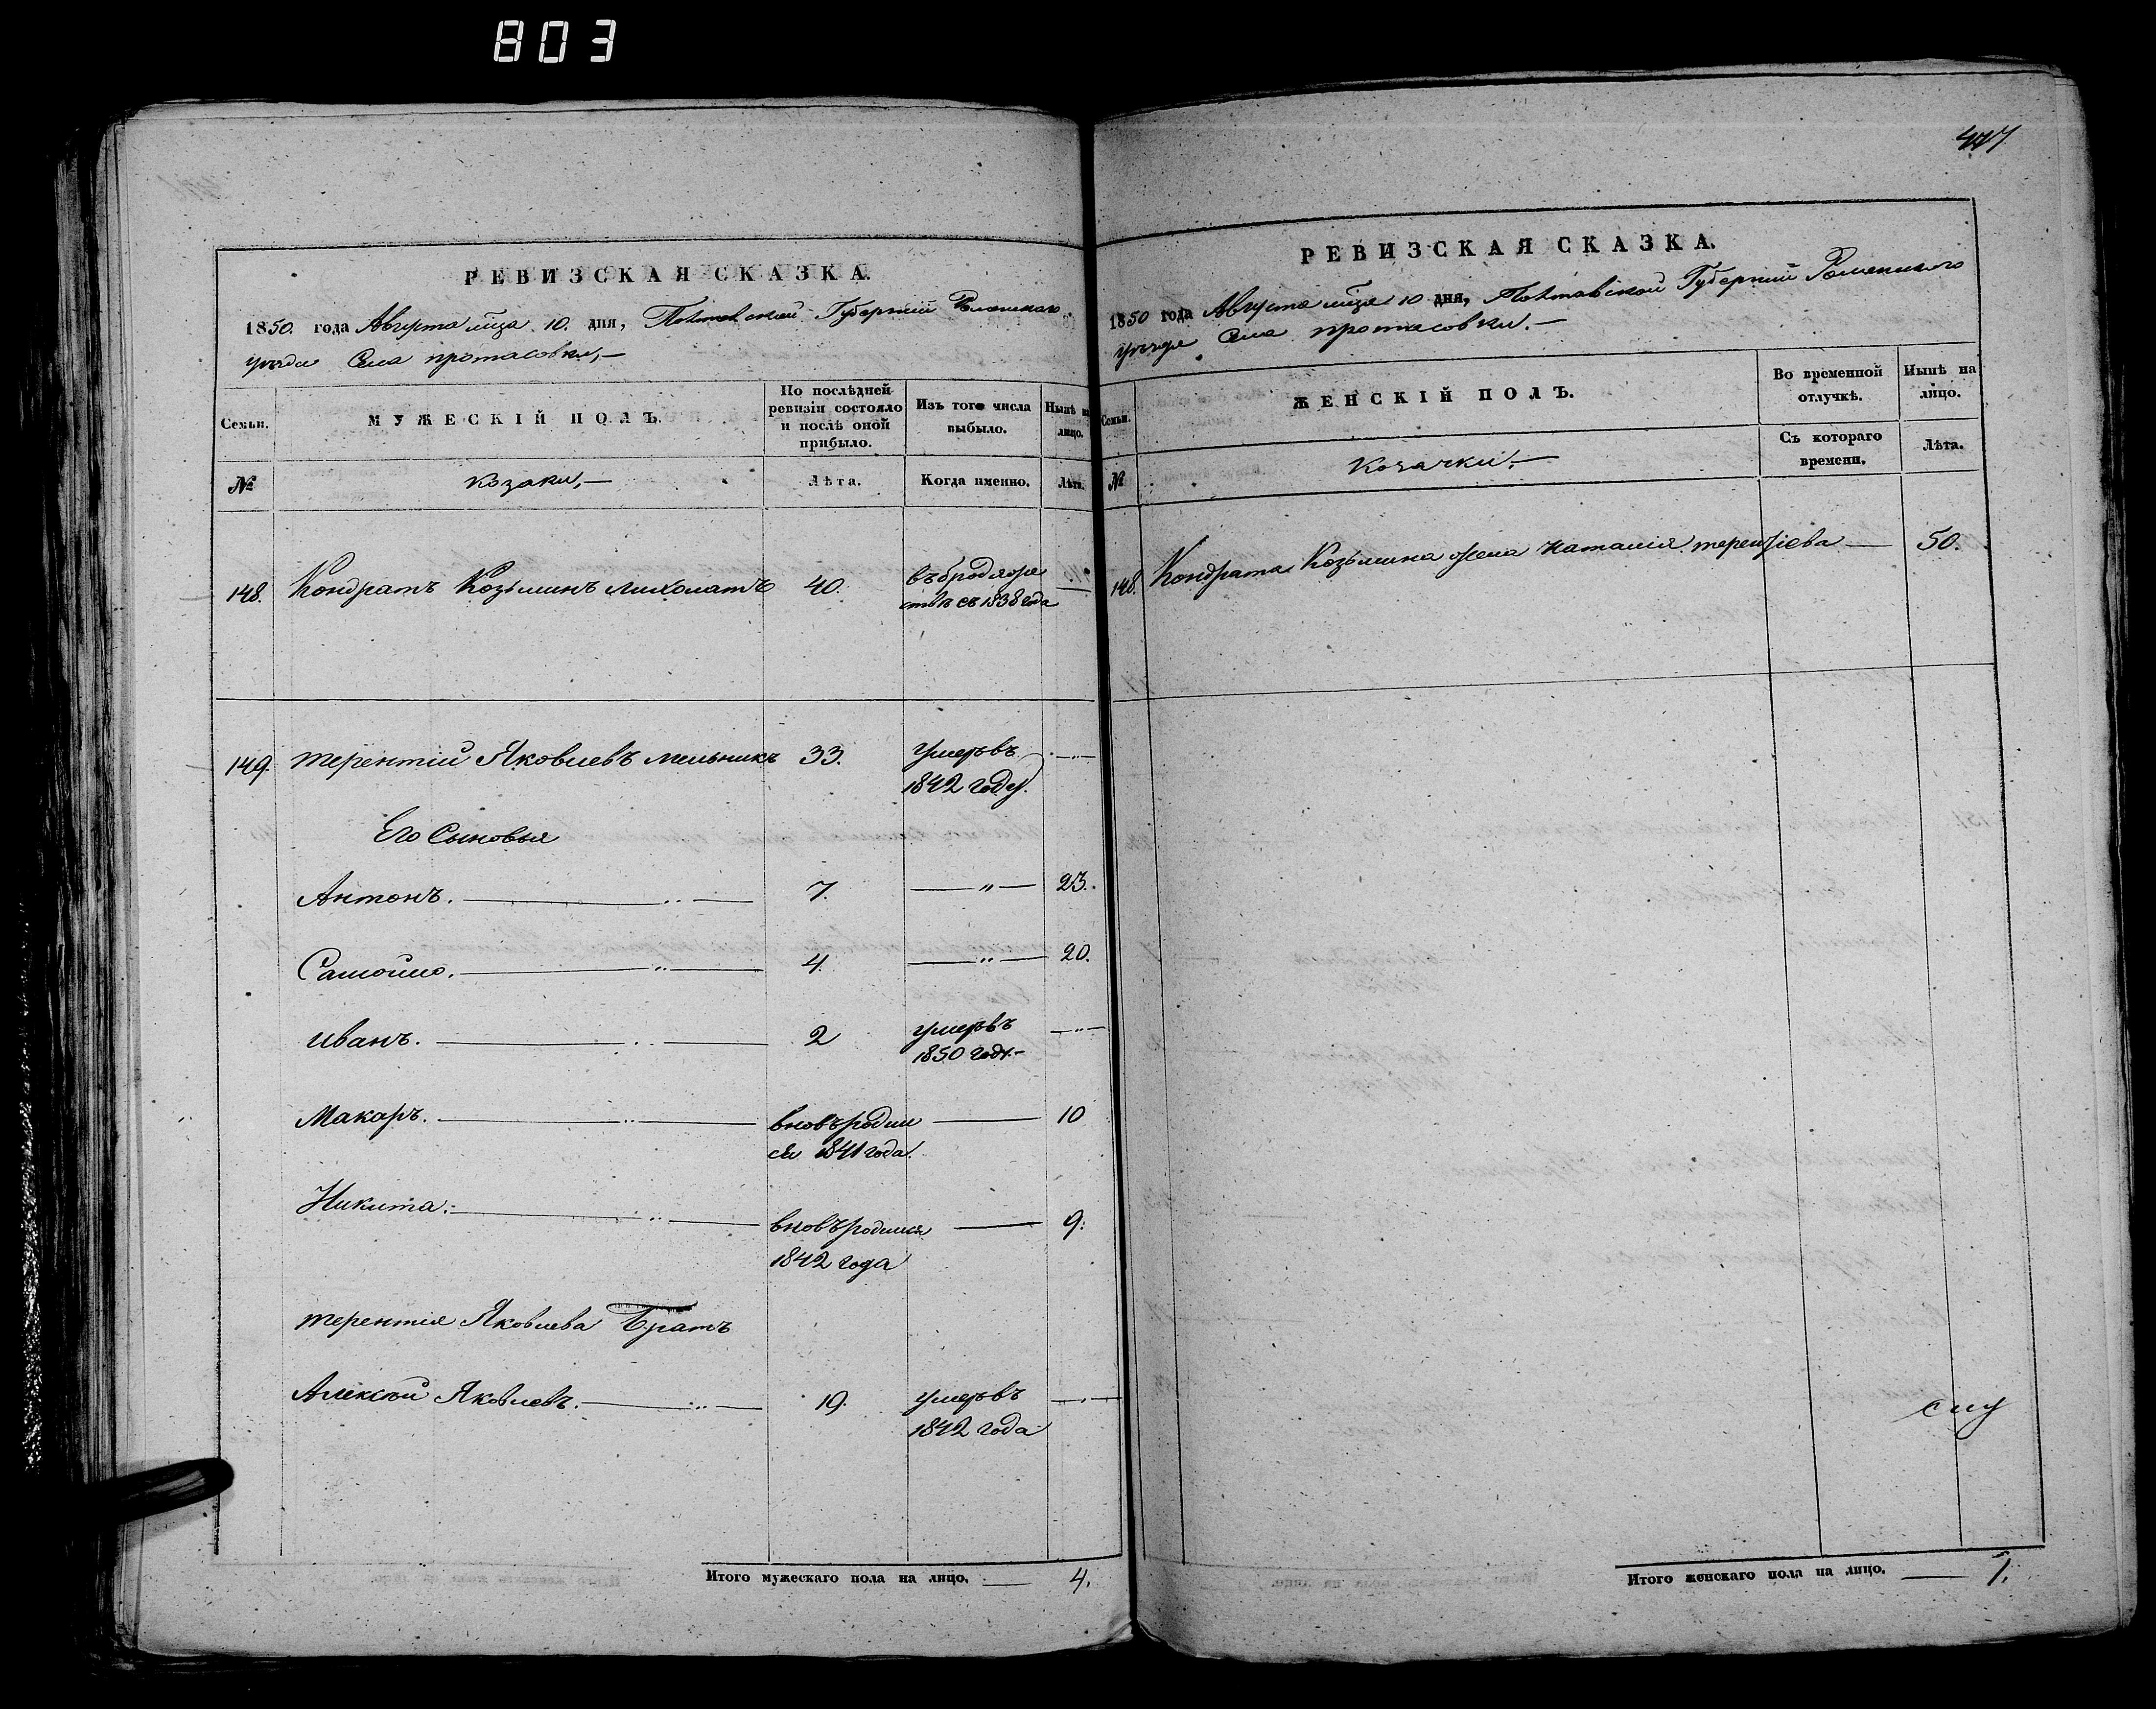 803
РЕВИЗСКАЯ СКАЗКА.
1850. года Августа мца 10. дня, Полтавской Губернии Роменскаго
уезда Села протасовки,—
Семьи.
МУЖЕСКІЙ ПОЛЪ.
По послѣдней
ревизіи состояло
и послѣ оной
прибыло.
Изъ того числа
выбыло.
Нынѣ на
лицо.
№
козаки,—
Лѣта.
Когда именно.
Лѣта.
148. Кондратъ Козьминъ лихолатъ 40. въ бродяже
ствѣ съ 1838 года
149. терентій Яковлевъ мельникъ 33. умеръ въ
1842 году.
Его Сыновья
Антонъ. 7. —„— 23.
Самойло. 4. —„— 20.
иванъ. 2 умеръ въ
1850 годѣ.—
Макаръ. вновь родил 10
ся 1841 года.
Никита. вновь родился 9.
1842 года
терентія Яковлева Братъ
Алексѣй Яковлевъ. 19. умеръ въ
1842 года
Итого мужескаго пола на лицо. — 4.
447
РЕВИЗСКАЯ СКАЗКА.
1850 года Августа мца 10 дня, Полтавской Губернии Роменскаго
уезда Села протасовки.—
Семьи.
ЖЕНСКІЙ ПОЛЪ.
Во временной
отлучкѣ.
Нынѣ на
лицо.
№
Козачки.—
Съ котораго
времени.
Лѣта.
148. Кондрата Козьмина жена наталія терентіева — 50.
Итого женскаго пола на лицо. — 1.